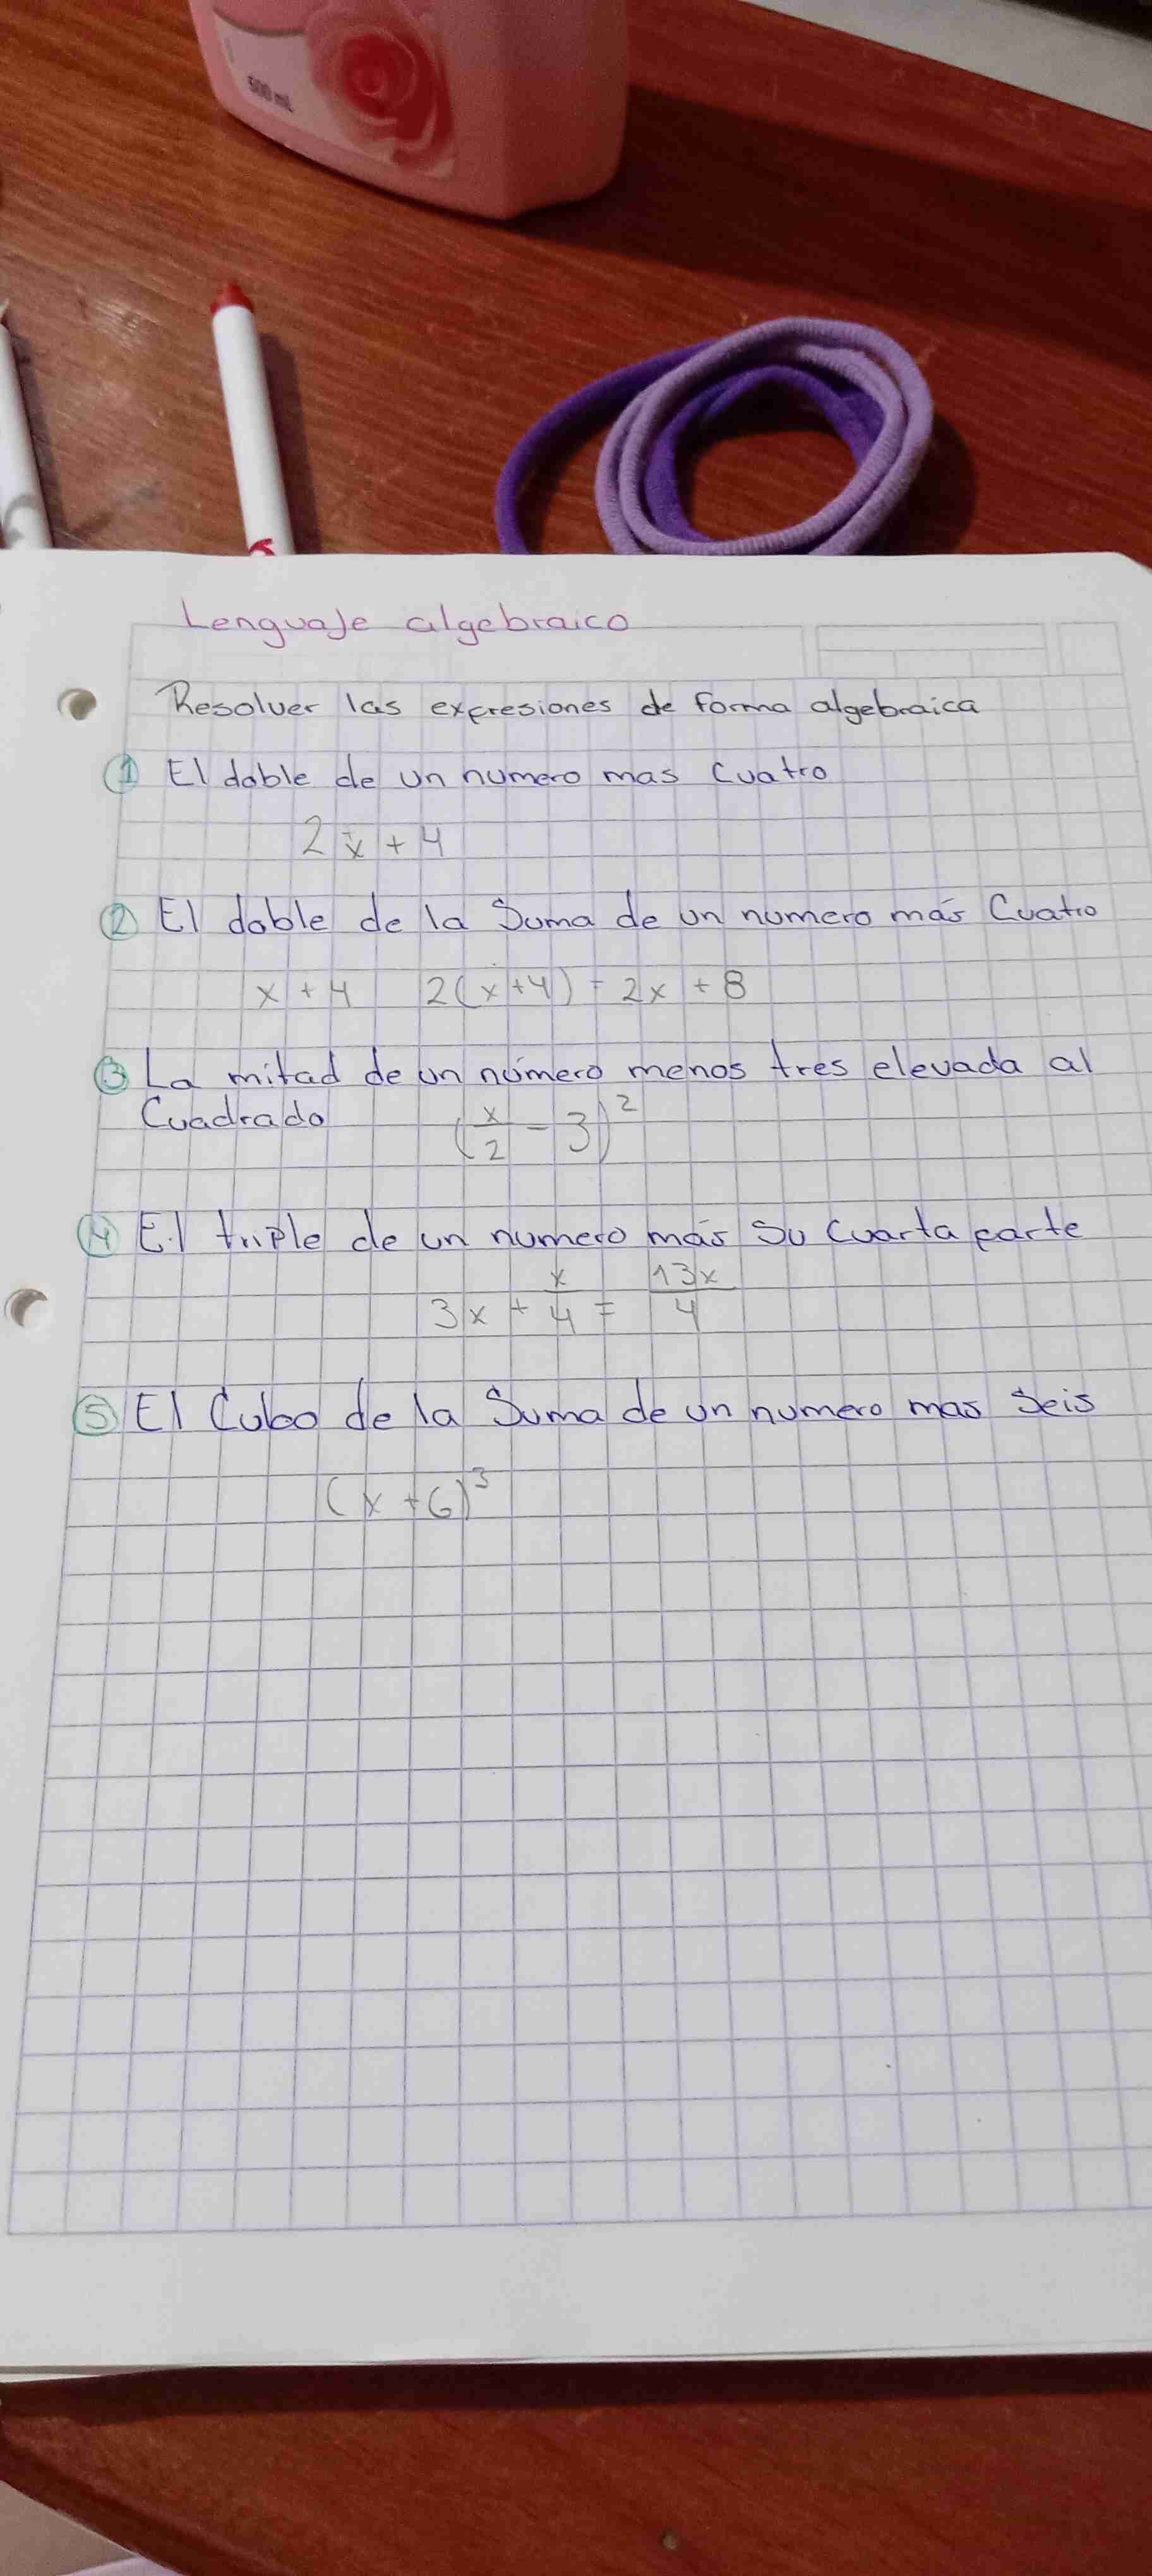 500 mL
Lenguaje algebraico
Resolver las expresiones de forma algebraica
① El doble de un numero mas cuatro
2x + 4
② El doble de la Suma de un numero más Cuatro
x + 4 2(x+4) = 2x + 8
③ La mitad de un número menos tres elevada al
Cuadrado (x/2 - 3)²
④ El triple de un numero más su Cuarta parte
3x + x/4 = 13x/4
⑤ El Cubo de la Suma de un numero mas Seis
(x+6)³